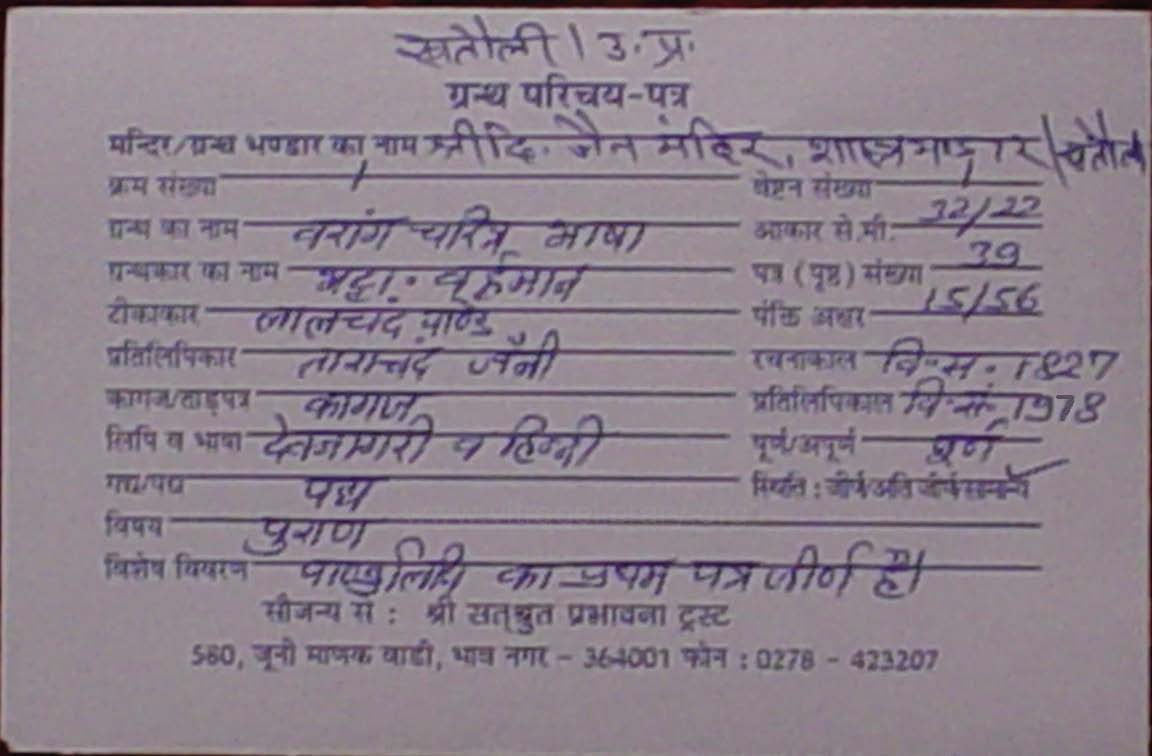 खतौली । उ.प्र.
ग्रन्थ परिचय-पत्र
मन्दिर/ग्रन्थ भण्डार का नाम श्री दि. जैन मंदिर, शास्त्र भण्डार/खतौली
क्रम संख्या 1 वेष्टन संख्या 1
ग्रन्थ का नाम वरांग चरित्र भाषा आकार से.मी. 32/22
ग्रन्थकार का नाम भट्टा. वर्द्धमान पत्र (पृष्ठ) संख्या 39
टीकाकार लालचंद पाण्डे पंक्ति अक्षर 15/56
प्रतिलिपिकार ताराचंद जैनी रचनाकाल वि.स. 1827
कागज/ताड़पत्र कागज प्रतिलिपिकाल वि.सं. 1978
लिपि व भाषा देवनागरी व हिन्दी पूर्ण/अपूर्ण पूर्ण
गद्य/पद्य पद्य स्थिति : जीर्ण/अति जीर्ण/सामान्य ✓
विषय पुराण
विशेष विवरण पाण्डुलिपि का प्रथम पत्र जीर्ण है।
सौजन्य से : श्री सत्श्रुत प्रभावना ट्रस्ट
580, जूनी माणक वाडी, भाव नगर - 364001 फोन : 0278 - 423207